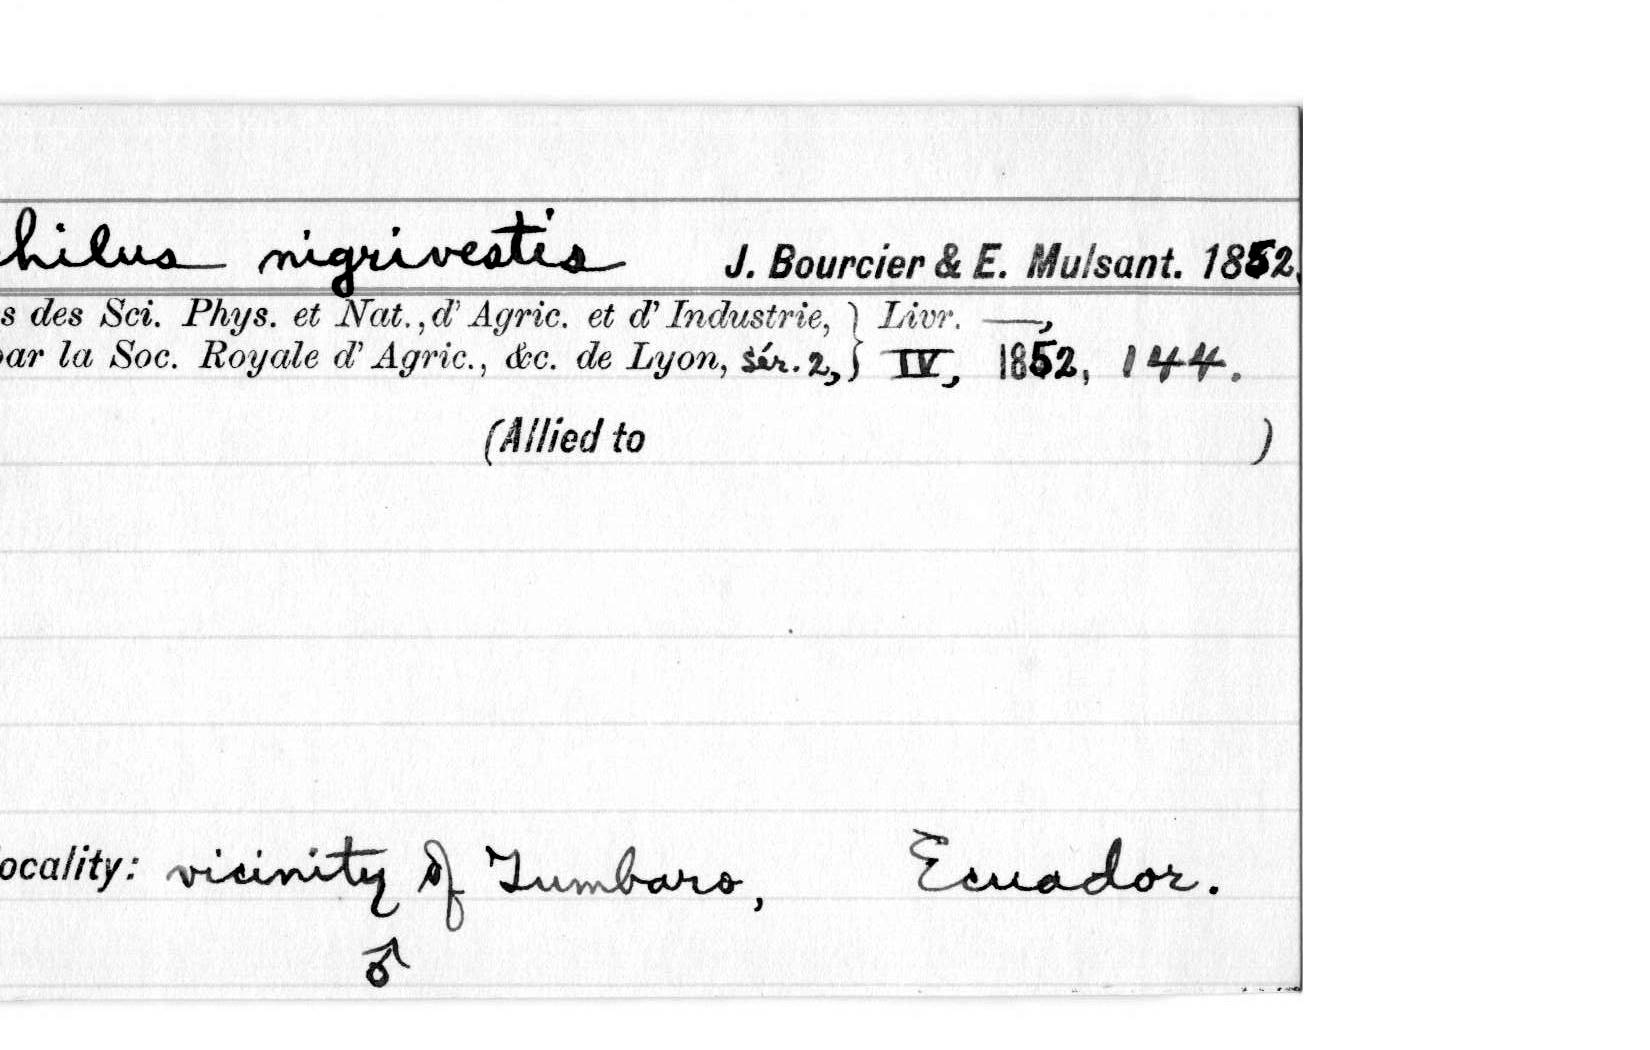 hilus nigrivestis J. Bourcier & E. Mulsant. 1852.
s des Sci. Phys. et Nat., d' Agric. et d' Industrie, } Livr. —,
par la Soc. Royale d' Agric., &c. de Lyon, sér. 2, } IV, 1852, 144.
(Allied to )
ocality: vicinity of Tumbaro, Ecuador.
♂